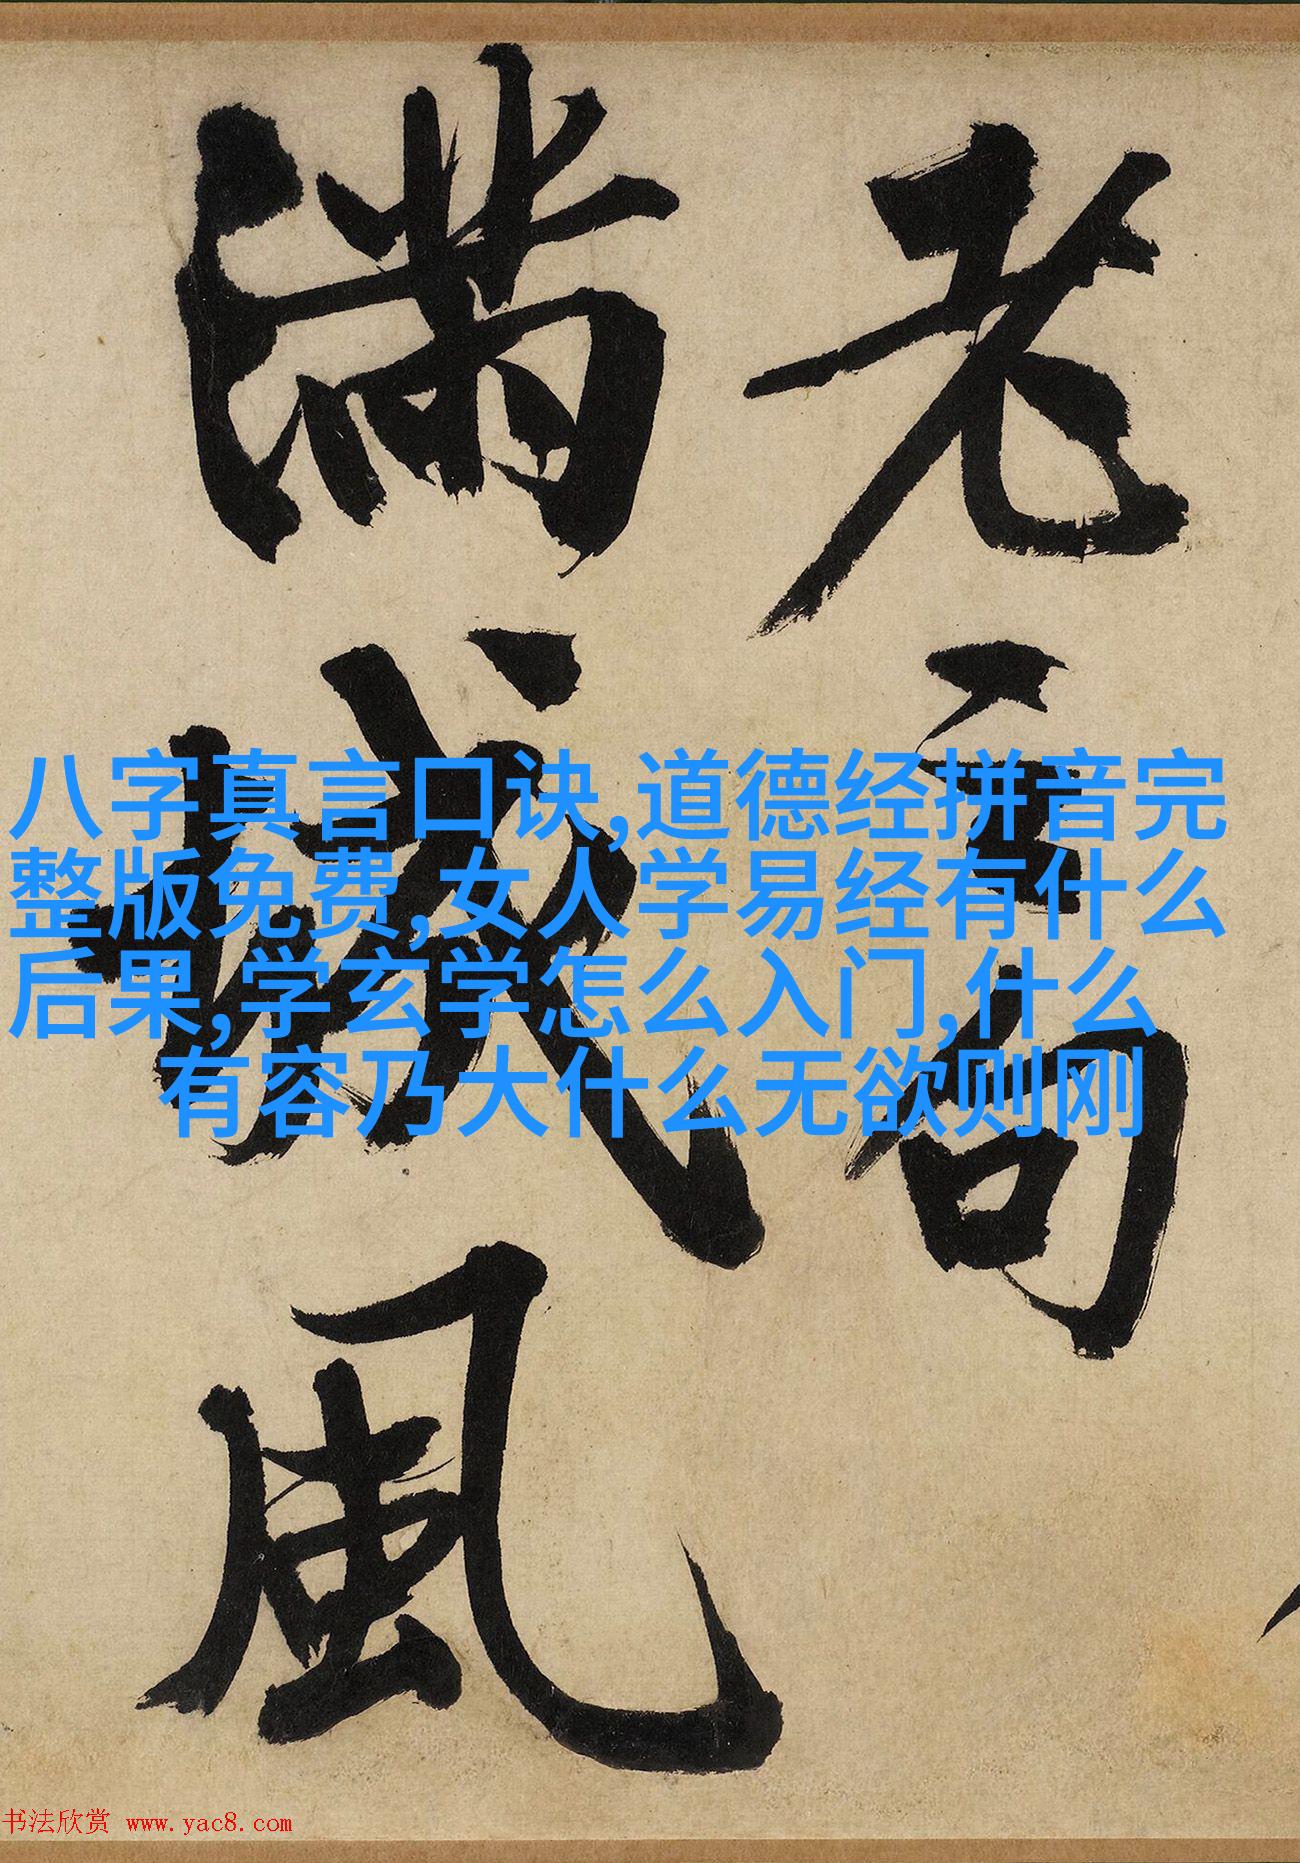 老主句
满城风
八字真言口诀,道德经拼音完
整版免费,女人学易经有什么
后果,学玄学怎么入门,什么
有容乃大什么无欲则刚
书法欣赏 www.yac8.com